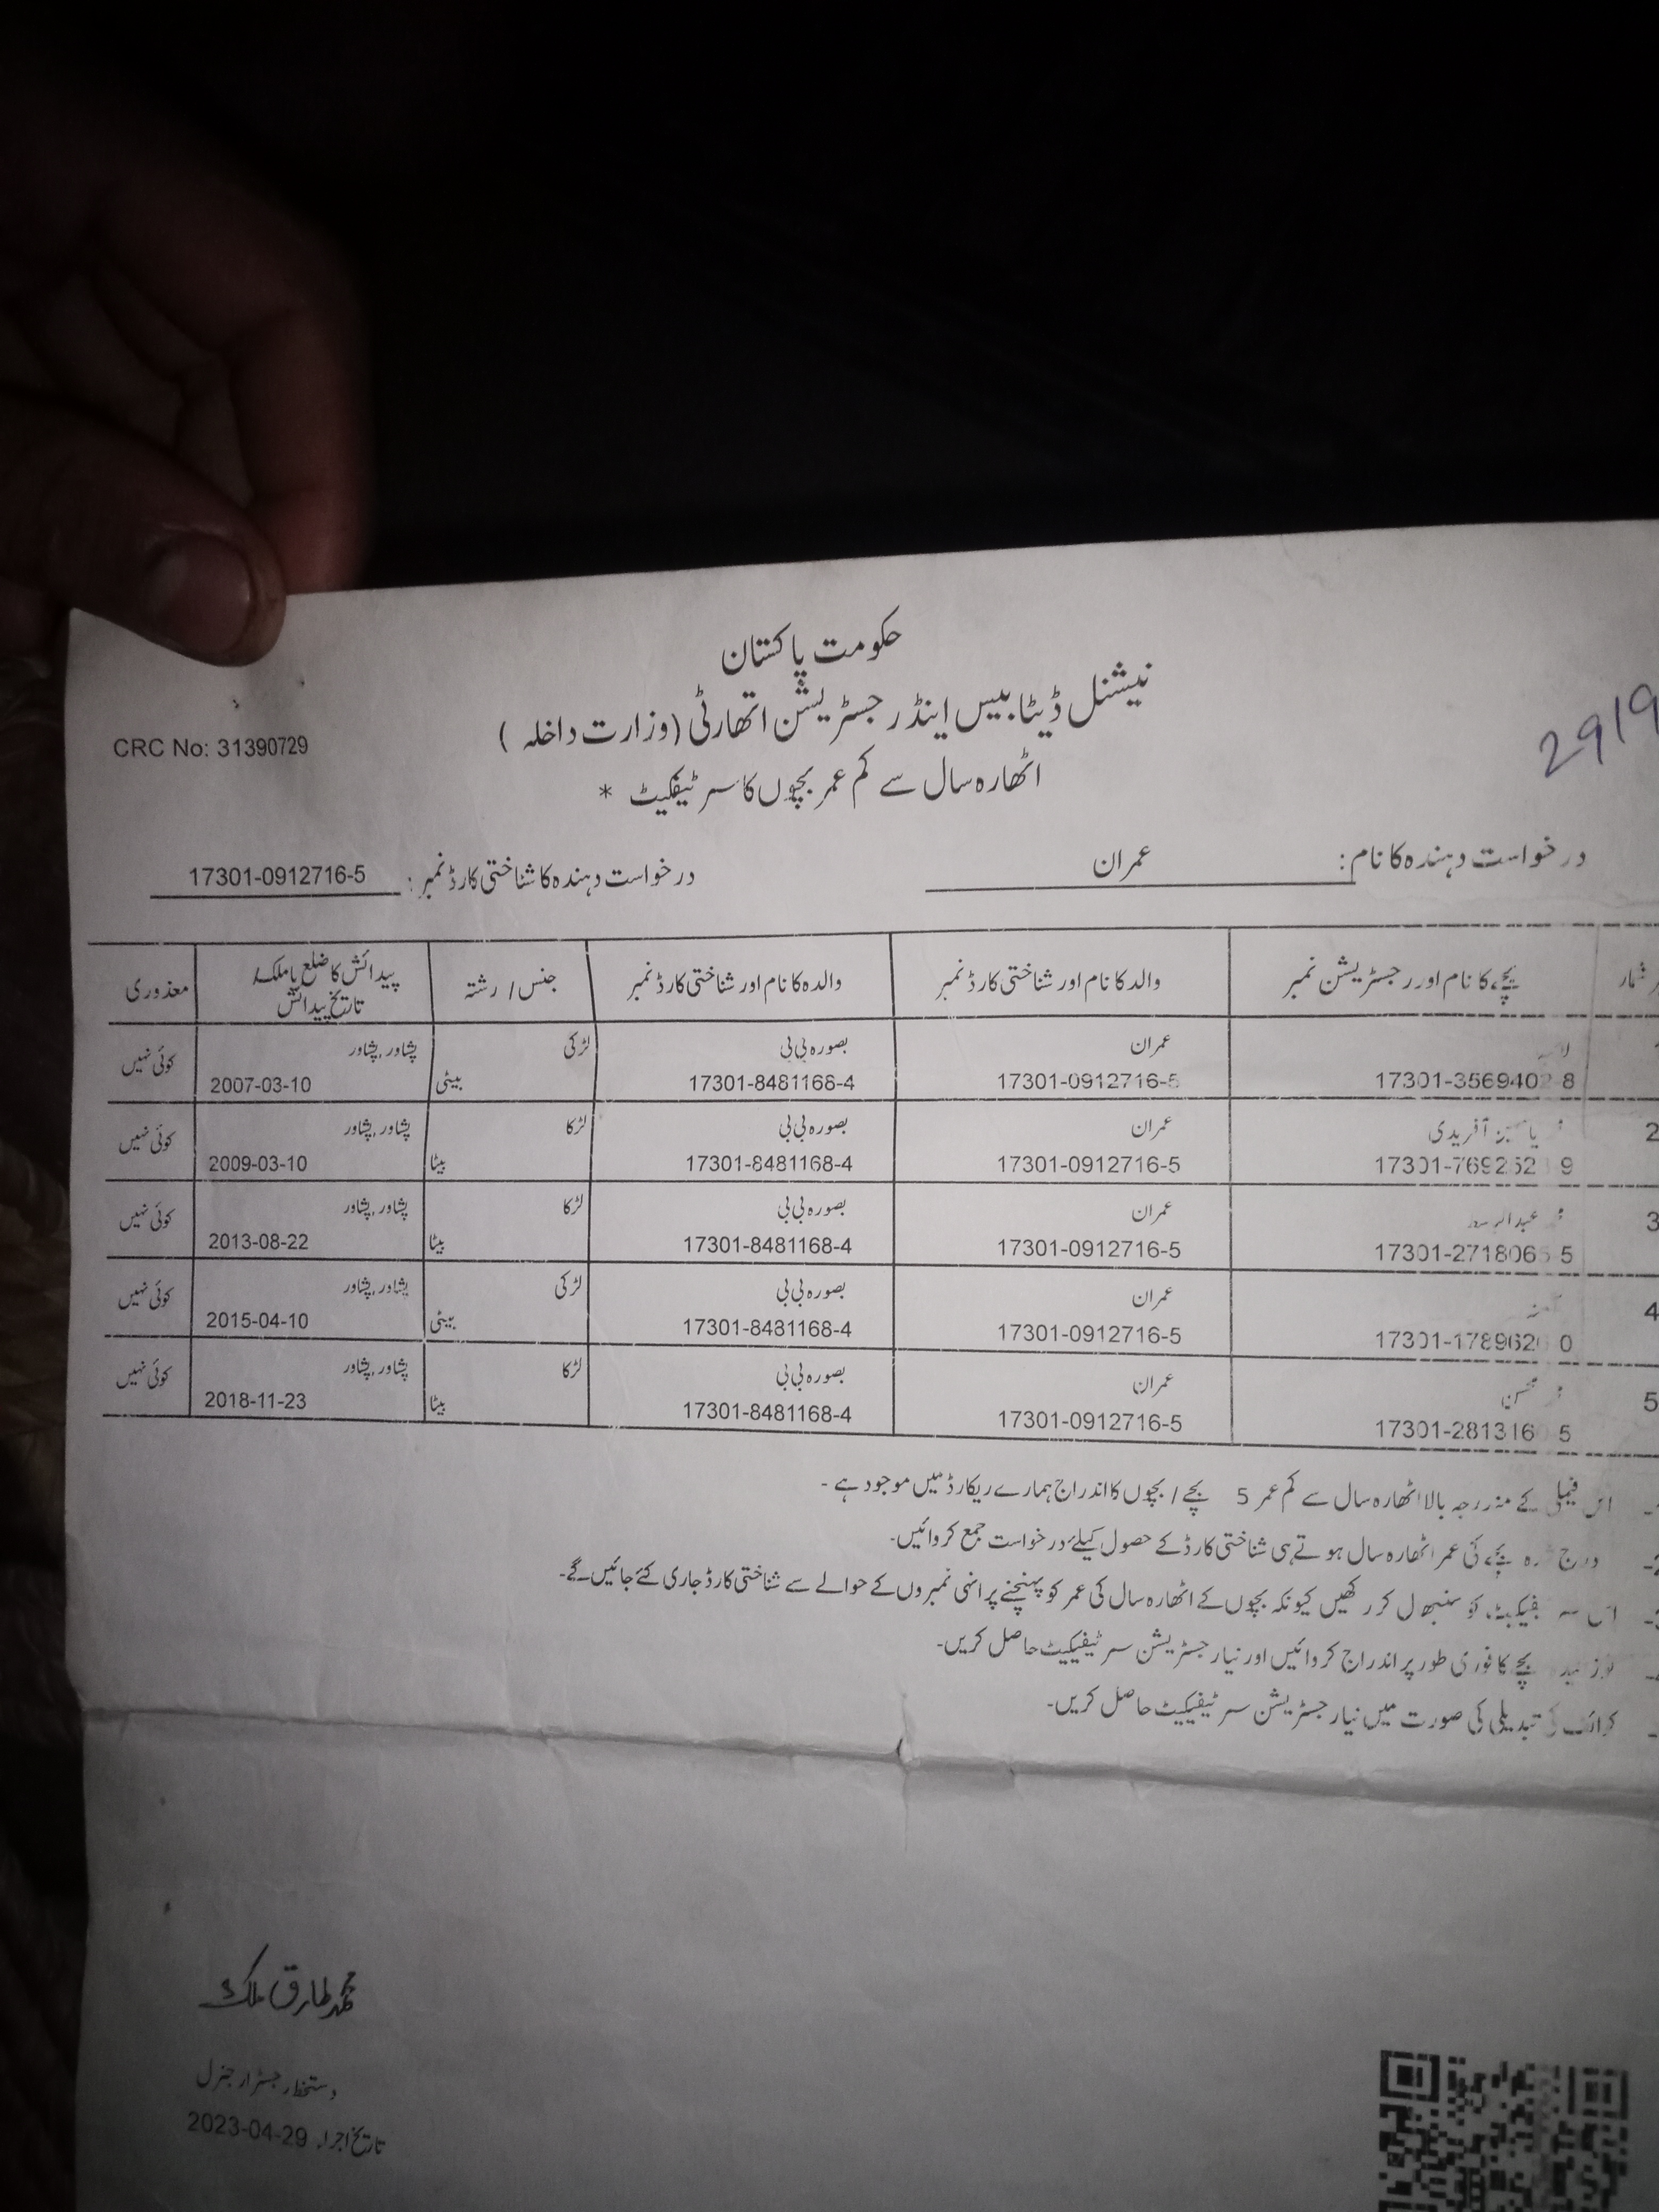 حکومت پاکستان
نیشنل ڈیٹا بیس اینڈ رجسٹریشن اتھارٹی (وزارت داخلہ)
CRC No: 31390729
2919
اٹھارہ سال سے کم عمر بچوں کا سرٹیفکیٹ *
درخواست دہندہ کا نام: عمران درخواست دہندہ کا شناختی کارڈ نمبر: 17301-0912716-5
شمار بچے کا نام اور رجسٹریشن نمبر والد کا نام اور شناختی کارڈ نمبر والدہ کا نام اور شناختی کارڈ نمبر جنس / رشتہ پیدائش کا ضلع یا ملک/ معذوری
تاریخ پیدائش
عمران بصورہ بی بی لڑکی پشاور, پشاور کوئی نہیں
17301-0912716-5 17301-8481168-4 بیٹی 2007-03-10
2 آفریدی عمران بصورہ بی بی لڑکا پشاور, پشاور کوئی نہیں
17301-0912716-5 17301-8481168-4 بیٹا 2009-03-10
3 عمران بصورہ بی بی لڑکا پشاور, پشاور کوئی نہیں
17301-0912716-5 17301-8481168-4 بیٹا 2013-08-22
4 عمران بصورہ بی بی لڑکی پشاور, پشاور کوئی نہیں
17301-0912716-5 17301-8481168-4 بیٹی 2015-04-10
5 محسن عمران بصورہ بی بی لڑکا پشاور, پشاور کوئی نہیں
17301-0912716-5 17301-8481168-4 بیٹا 2018-11-23
اس فیملی کے مندرجہ بالا اٹھارہ سال سے کم عمر 5 بچے / بچوں کا اندراج ہمارے ریکارڈ میں موجود ہے۔
درج بچے کی عمر اٹھارہ سال ہوتے ہی شناختی کارڈ کے حصول کیلئے درخواست جمع کروائیں۔
اس کو سنبھال کر رکھیں کیونکہ بچوں کے اٹھارہ سال کی عمر کو پہنچنے پر انہی نمبروں کے حوالے سے شناختی کارڈ جاری کئے جائیں گے۔
بچے کا فوری طور پر اندراج کروائیں اور نیا رجسٹریشن سرٹیفیکیٹ حاصل کریں۔
تبدیلی کی صورت میں نیا رجسٹریشن سرٹیفیکیٹ حاصل کریں۔
محمد طارق ملک
دستخط رجسٹرار جنرل
تاریخ اجراء 2023-04-29